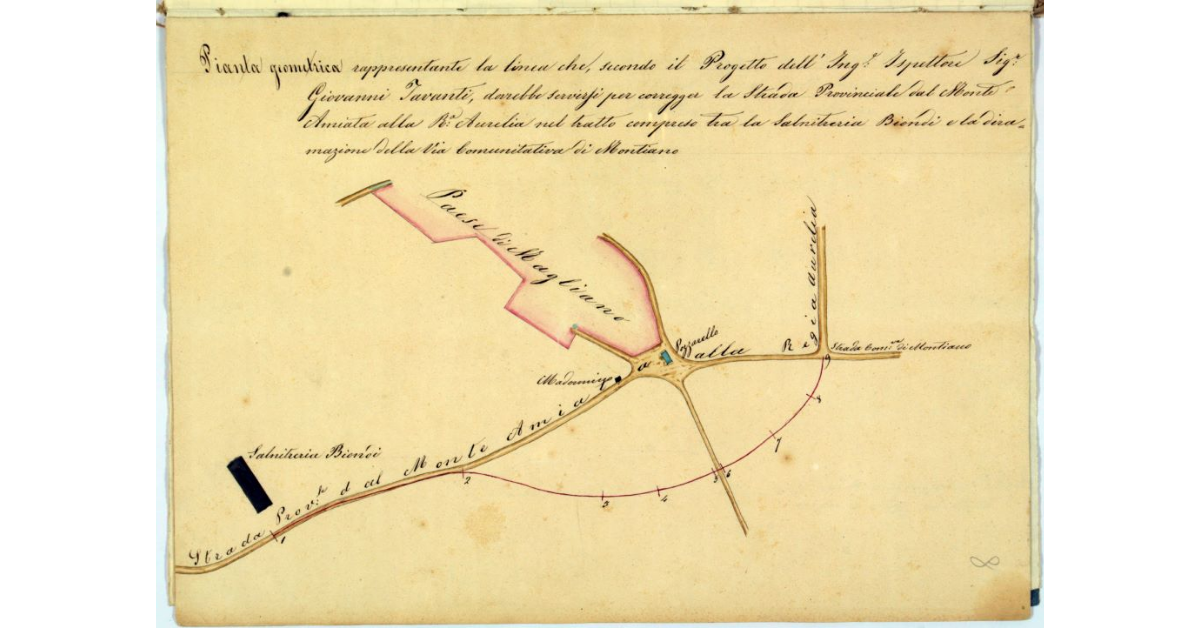 Pianta geometrica rappresentante la linea che, secondo il Progetto dell' Ing.e Ispettore Sig.r
Giovanni Tavanti, dovrebbe servirsi per corregger la Strada Provinciale dal Monte
Amiata alla R.a Aurelia nel tratto compreso tra la Salnitreria Biondi e la dira=
mazione della Via Comunitativa di Montiano
Paese di Magliano
Regia Aurelia
Pozzarello
alla
Strada Com.va di Montiano
Madonnino
a
Salnitreria Biondi
Strada Prov.le dal Monte Amia
1
2
3
4
5
6
7
8
9